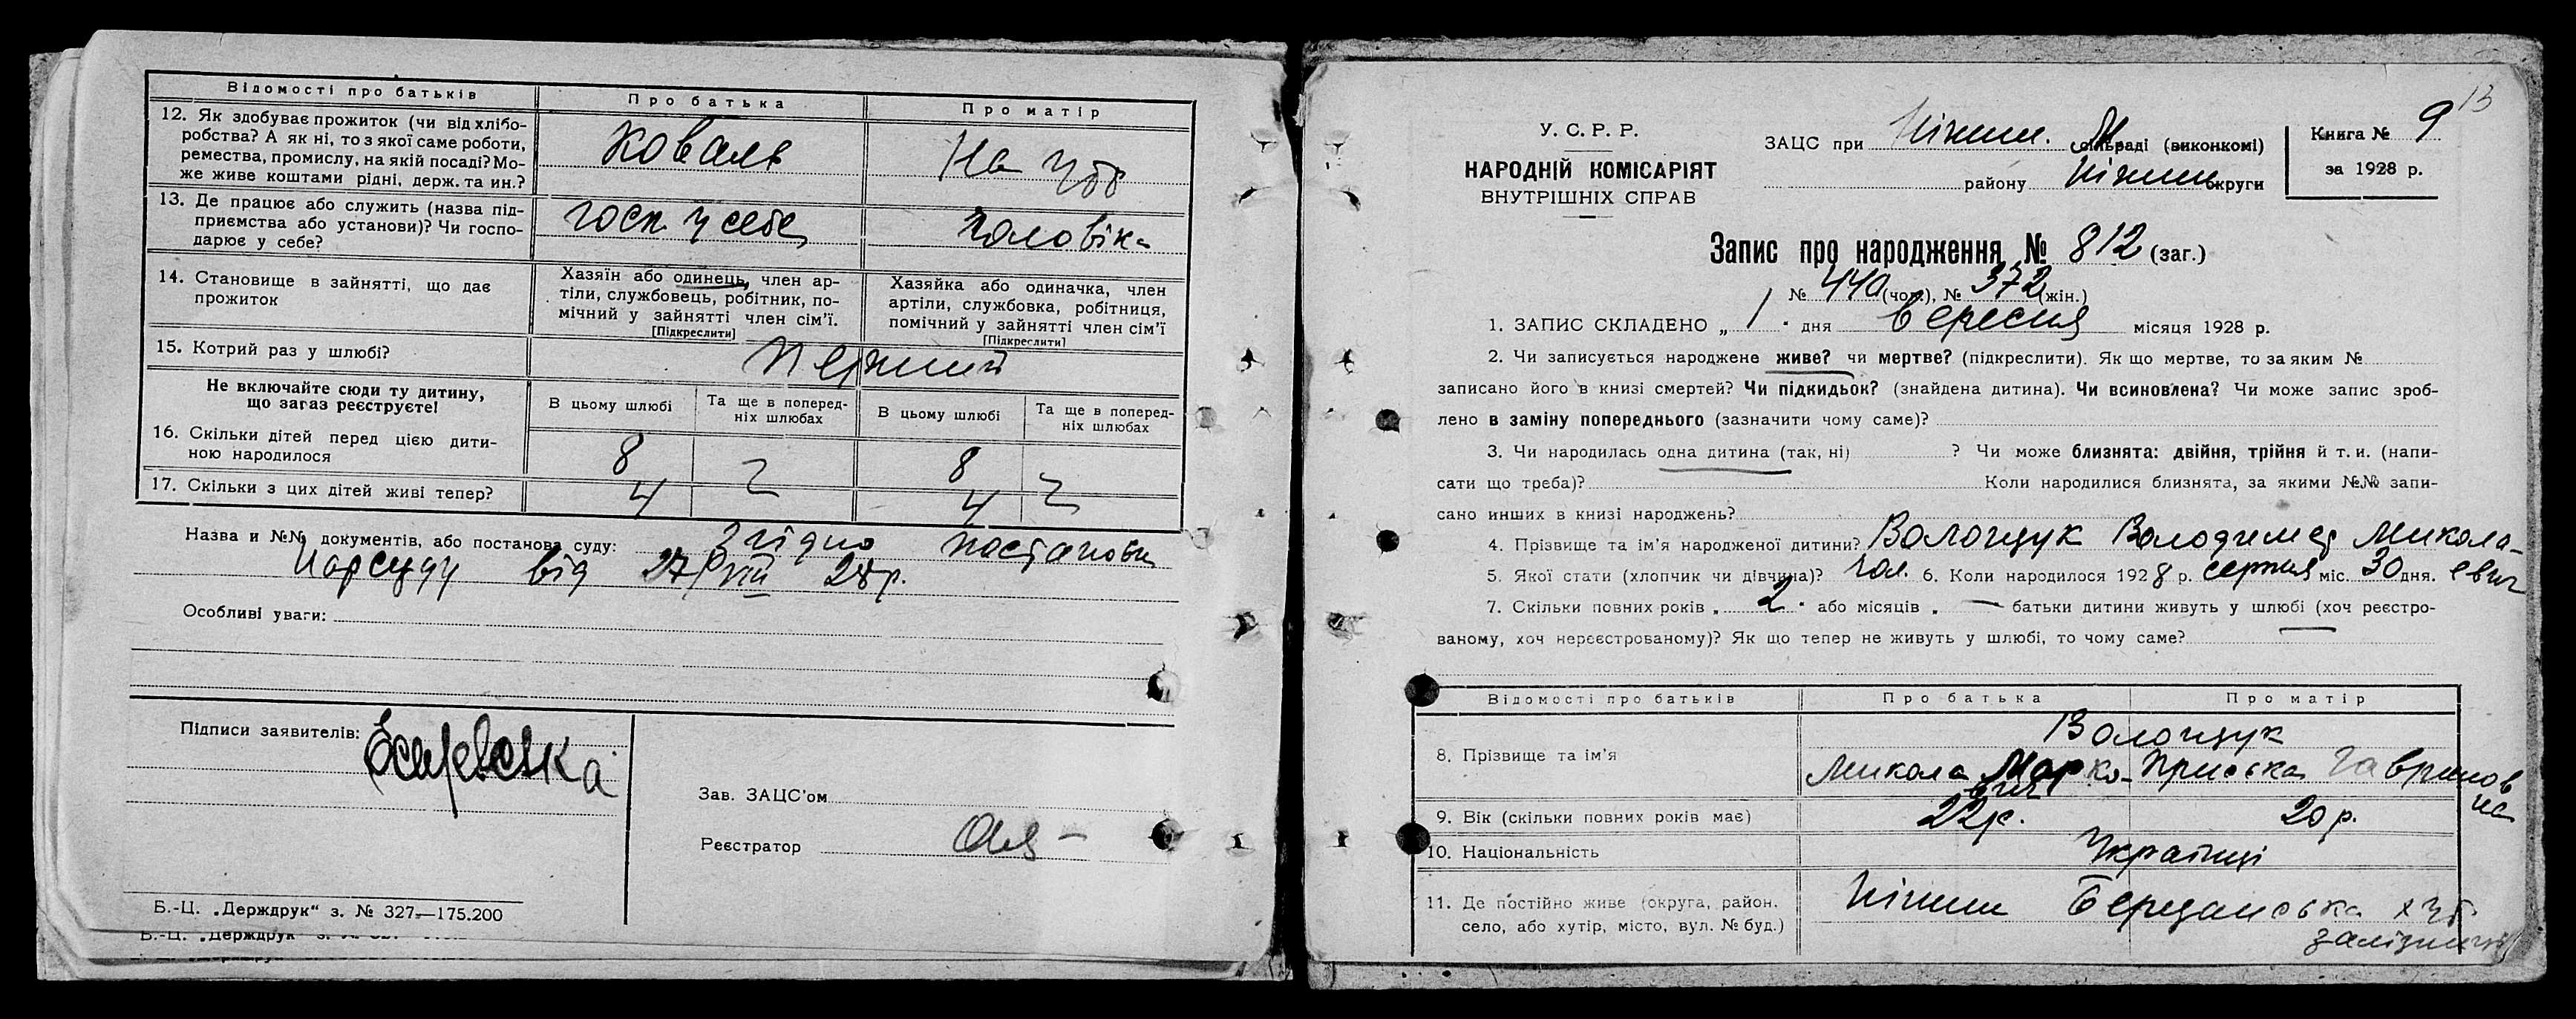 Відомості про батьків
Про батька
Про матір
12. Як здобуває прожиток (чи від хлібо-
робства? А як ні, то з якої саме роботи,
ремества, промислу, на якій посаді? Мо-
же живе коштами рідні, держ. та ин.?
Коваль
На
13. Де працює або служить (назва під-
приємства або установи)? Чи госпо-
дарює у себе?
госп. у себе
чоловіка
14. Становище в зайнятті, що дає
прожиток
Хазяїн або одинець, член ар-
тіли, службовець, робітник, по-
мічний у зайнятті член сім'ї.
[Підкреслити]
Хазяйка або одиначка, член
артіли, службовка, робітниця,
помічний у зайнятті член сім'ї
[Підкреслити]
15. Котрий раз у шлюбі?
Перший
Не включайте сюди ту дитину,
що загаз реєструєте!
В цьому шлюбі
Та ще в поперед-
ніх шлюбах
В цьому шлюбі
Та ще в поперед-
ніх шлюбах
16. Скільки дітей перед цією дити-
ною народилося
8
8
17. Скільки з цих дітей живі тепер?
4
4
Назва и №№ документів, або постанова суду: Згідно постанови
Нарсуду від 27/VIII 28р.
Особливі уваги:
Підписи заявителів:
Зав. ЗАЦС'ом
Реєстратор
Б.-Ц. „Держдрук" з. № 327—175.200
Б.-Ц. „Держдрук"
13
У. С. Р. Р.
НАРОДНІЙ КОМІСАРІЯТ
ВНУТРІШНІХ СПРАВ
ЗАЦС при Ніжин. М. сільраді (виконкомі)
району Ніжин. округи
Книга № 9
за 1928 р.
Запис про народження № 812 (заг.)
№ 440 (чол.), № 372 (жін.)
1. ЗАПИС СКЛАДЕНО „ 1 " дня вересня місяця 1928 р.
2. Чи записується народжене живе? чи мертве? (підкреслити). Як що мертве, то за яким №
записано його в книзі смертей? Чи підкидьок? (знайдена дитина). Чи всиновлена? Чи може запис зроб-
лено в заміну попереднього (зазначити чому саме)?
3. Чи народилась одна дитина (так, ні) ? Чи може близнята: двійня, трійня й т. и. (напи-
сати що треба)? Коли народилися близнята, за якими №№ запи-
сано инших в книзі народжень?
4. Прізвище та ім'я народженої дитини? Волощук Володимер Микола-
5. Якої стати (хлопчик чи дівчина)? чол. 6. Коли народилося 1928 р. серпня міс. 30 дня. євич
7. Скільки повних років „ 2 " або місяців „ — батьки дитини живуть у шлюбі (хоч реєстро-
ваному, хоч нереєстрованому)? Як що тепер не живуть у шлюбі, то чому саме?
Відомості про батьків
Про батька
Про матір
8. Прізвище та ім'я
Волощук
Микола Марко-
вич
Приська Гаврилов
на
9. Вік (скільки повних років має)
22р.
20р.
10. Національність
Українці
11. Де постійно живе (округа, район,
село, або хутір, місто, вул. № буд.)
Ніжин Березанська